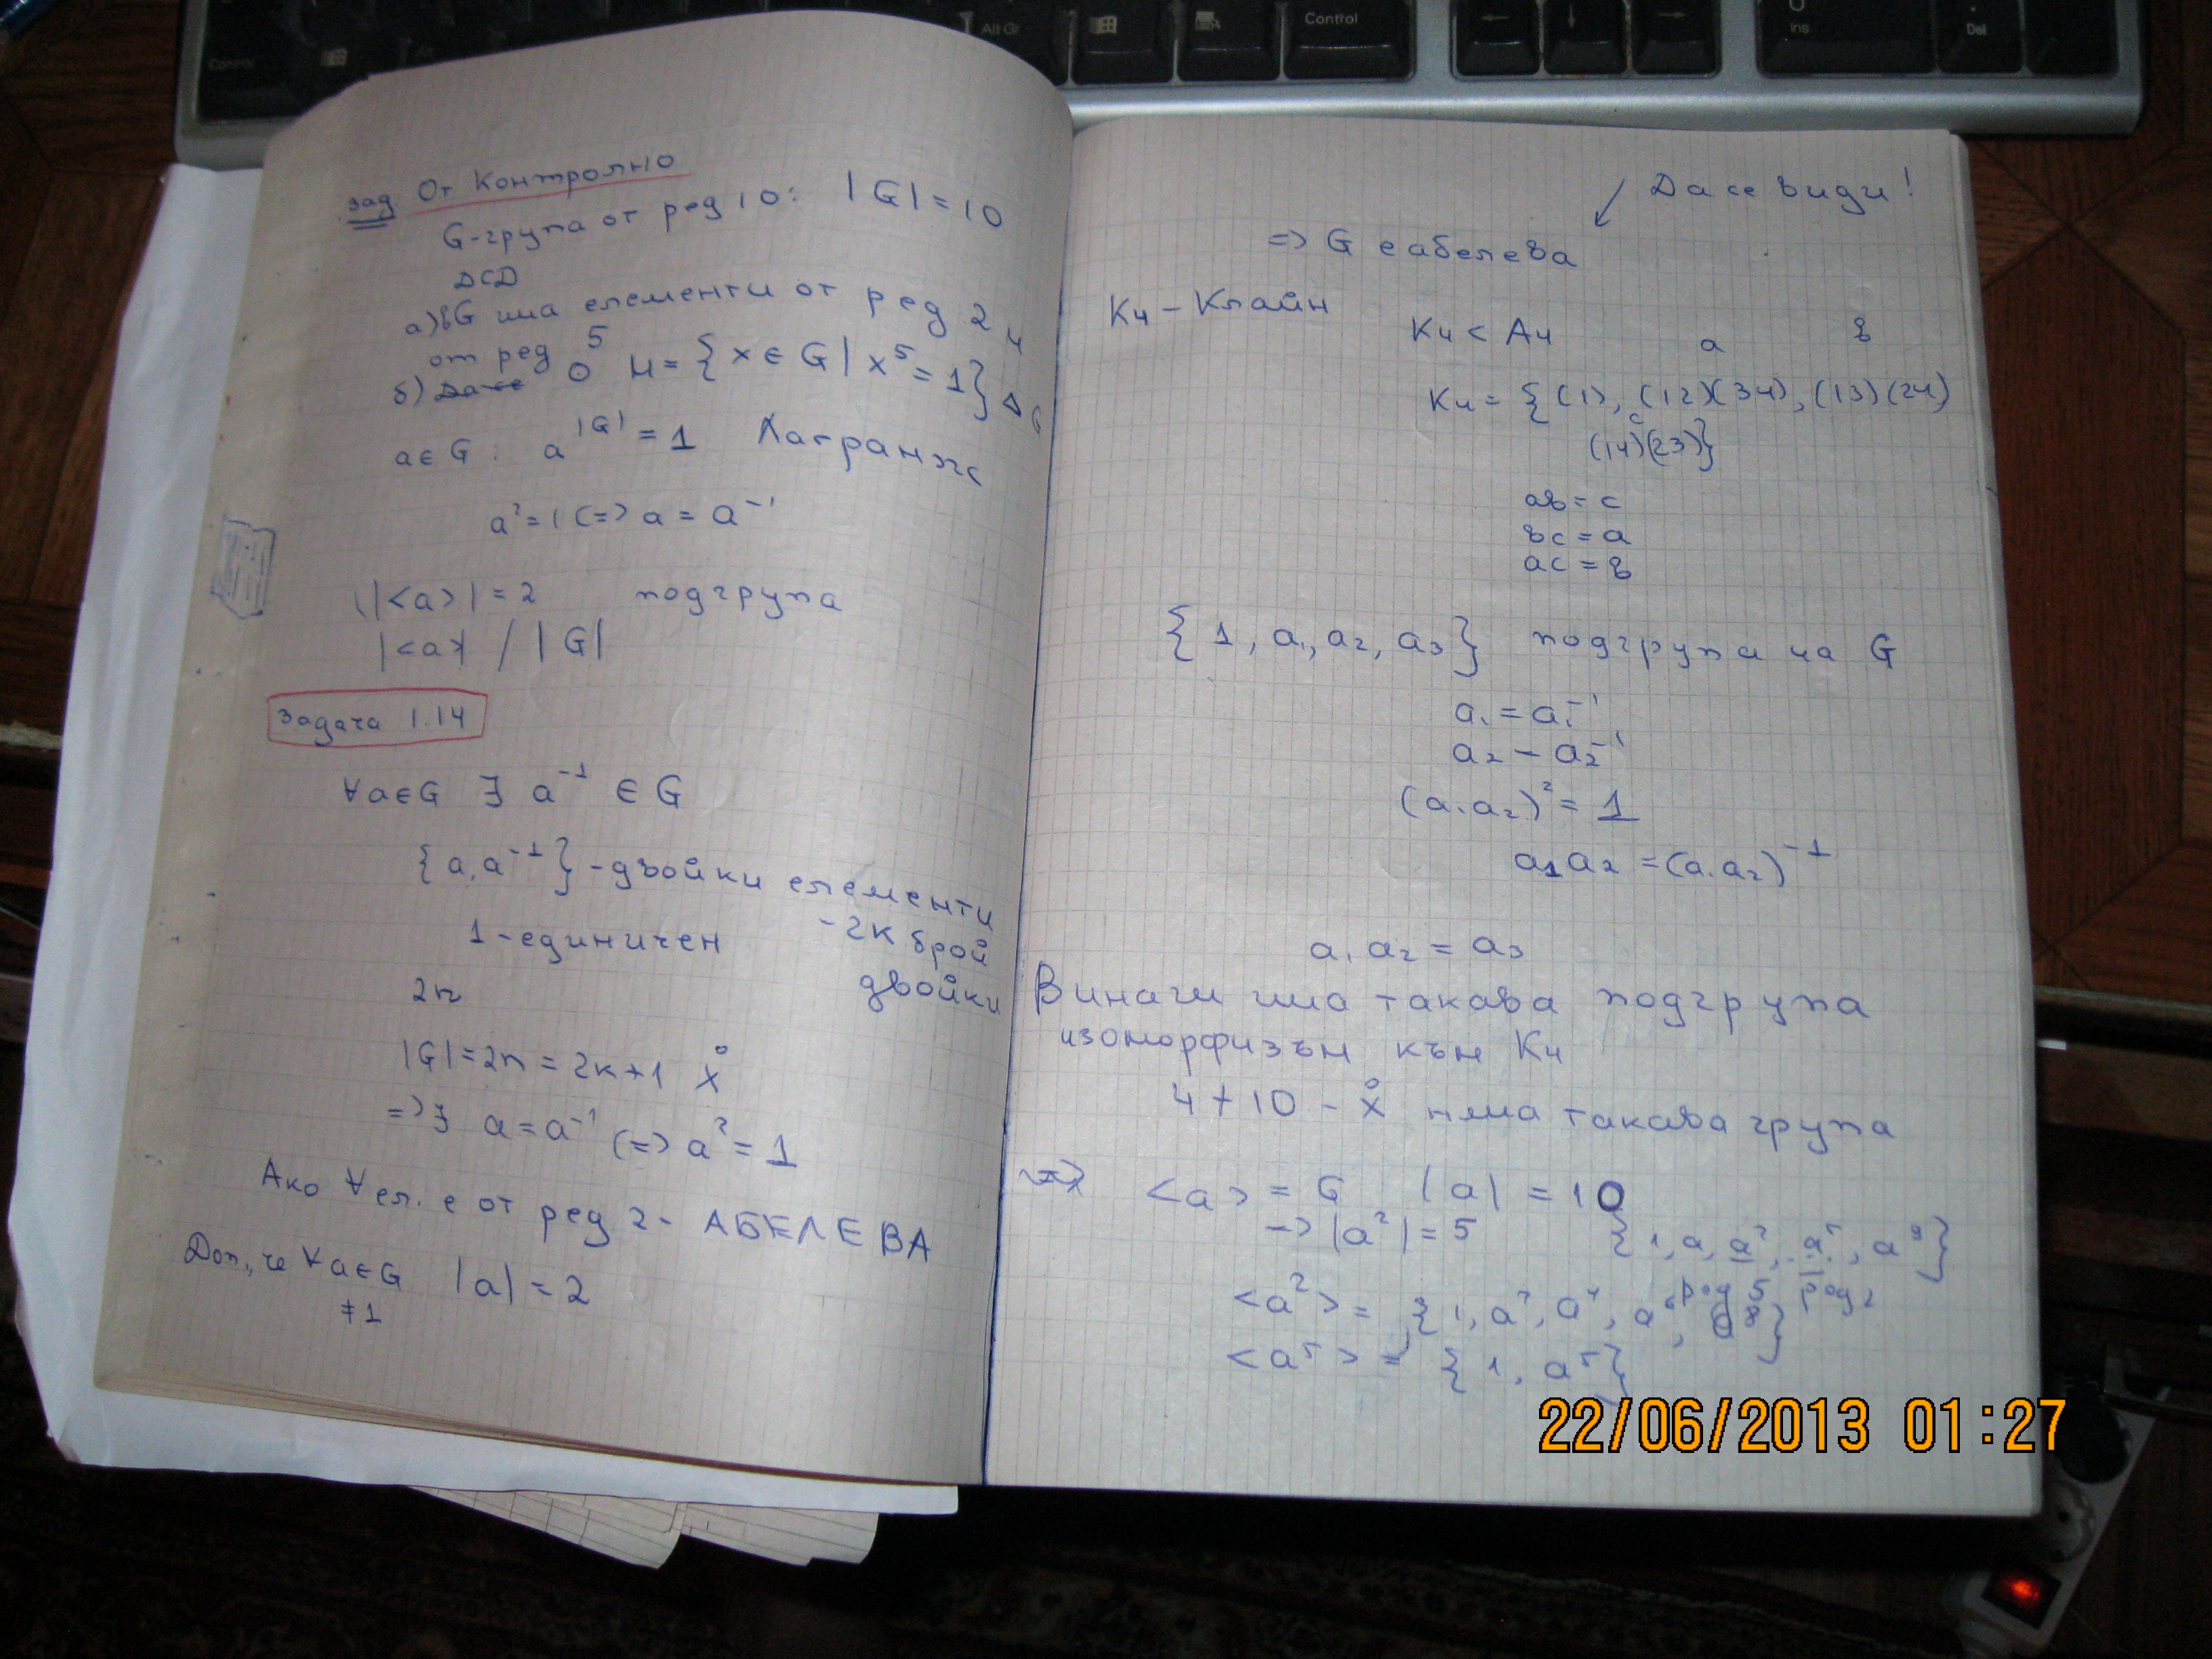 Control
Alt Gr
Control
Ins
Del
зад От Контролно
G-група от ред 10: |G| = 10
DCD
а) в G има елементи от ред 2 и
от ред 5
б) H = {x ∈ G | x⁵ = 1} Δ G
a ∈ G : a^|G| = 1 Лагранж
a² = 1 <=> a = a⁻¹
|<a>| = 2 подгрупа
|<a>| / |G|
Задача 1.14
∀a∈G ∃ a⁻¹ ∈ G
{a, a⁻¹} - двойки елементи
1 - единичен - 2k брой
двойки
2n
|G| = 2n = 2k+1 X
=> ∃ a = a⁻¹ <=> a² = 1
Ако ∀ ел. е от ред 2 - АБЕЛЕВА
Доп., че ∀a∈G |a| = 2
≠1
Да се види!
=> G е абелева
K₄ - Клайн
K₄ < A₄
a в
K₄ = {(1), (12)(34), (13)(24)
c
(14)(23)}
ab = c
bc = a
ac = b
{1, a₁, a₂, a₃} подгрупа на G
a₁ = a₁⁻¹
a₂ = a₂⁻¹
(a₁a₂)² = 1
a₁a₂ = (a₁a₂)⁻¹
a₁a₂ = a₃
Винаги има такава подгрупа
изоморфизъм към K₄
4 ∤ 10 - X няма такава група
=> <a> = G |a| = 10
-> |a²| = 5 {1, a, a², .. a⁵, a⁹}
ред 5 ред 2
<a²> = {1, a², a⁴, a⁶, a⁸}
<a⁵> = {1, a⁵}
22/06/2013 01:27